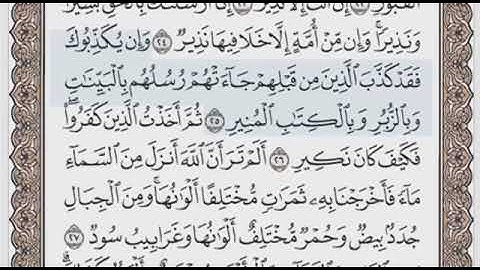 ٱلْقُبُورِ ٢٢ إِنْ أَنتَ إِلَّا نَذِيرٌ ٢٣ إِنَّآ أَرْسَلْنَٰكَ بِٱلْحَقِّ بَشِيرًا
وَنَذِيرًا ۚ وَإِن مِّنْ أُمَّةٍ إِلَّا خَلَا فِيهَا نَذِيرٌ ٢٤ وَإِن يُكَذِّبُوكَ
فَقَدْ كَذَّبَ ٱلَّذِينَ مِن قَبْلِهِمْ جَآءَتْهُمْ رُسُلُهُم بِٱلْبَيِّنَٰتِ
وَبِٱلزُّبُرِ وَبِٱلْكِتَٰبِ ٱلْمُنِيرِ ٢٥ ثُمَّ أَخَذْتُ ٱلَّذِينَ كَفَرُوا۟ ۖ
فَكَيْفَ كَانَ نَكِيرِ ٢٦ أَلَمْ تَرَ أَنَّ ٱللَّهَ أَنزَلَ مِنَ ٱلسَّمَآءِ
مَآءً فَأَخْرَجْنَا بِهِۦ ثَمَرَٰتٍ مُّخْتَلِفًا أَلْوَٰنُهَا ۚ وَمِنَ ٱلْجِبَالِ
جُدَدٌۢ بِيضٌ وَحُمْرٌ مُّخْتَلِفٌ أَلْوَٰنُهَا وَغَرَابِيبُ سُودٌ ٢٧